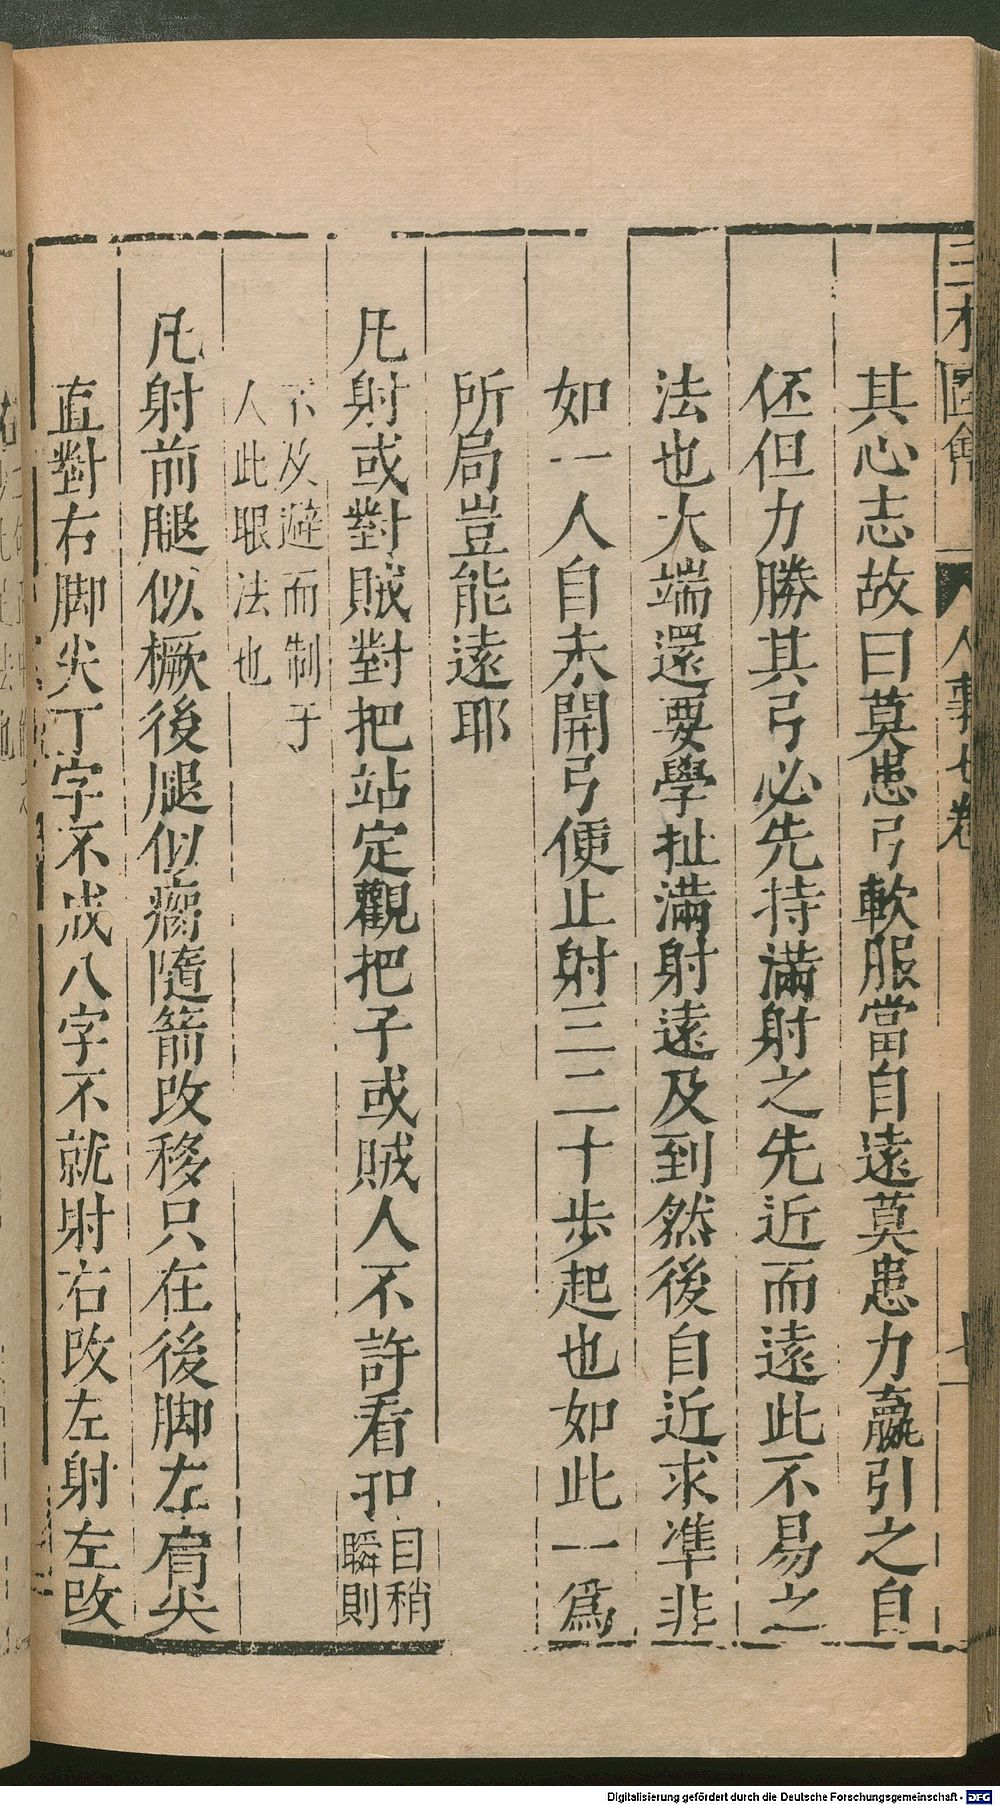 三才圖會 人事七卷
其心志故曰莫患弓軟服當自遠莫患力羸引之自
伾但力勝其弓必先持滿射之先近而遠此不易之
法也大端還要學扯滿射遠及到然後自近求凖非
如一人自未開弓便止射三二十步起也如此一爲
所局豈能遠耶
凡射或對賊對把站定觀把子或賊人不許看扣目稍瞬則
不及避而制于
人此眼法也
凡射前腿似橛後腿似瘸隨箭改移只在後脚左肩尖
直對右脚尖丁字不成八字不就射右改左射左改
Digitalisierung gefördert durch die Deutsche Forschungsgemeinschaft - DFG